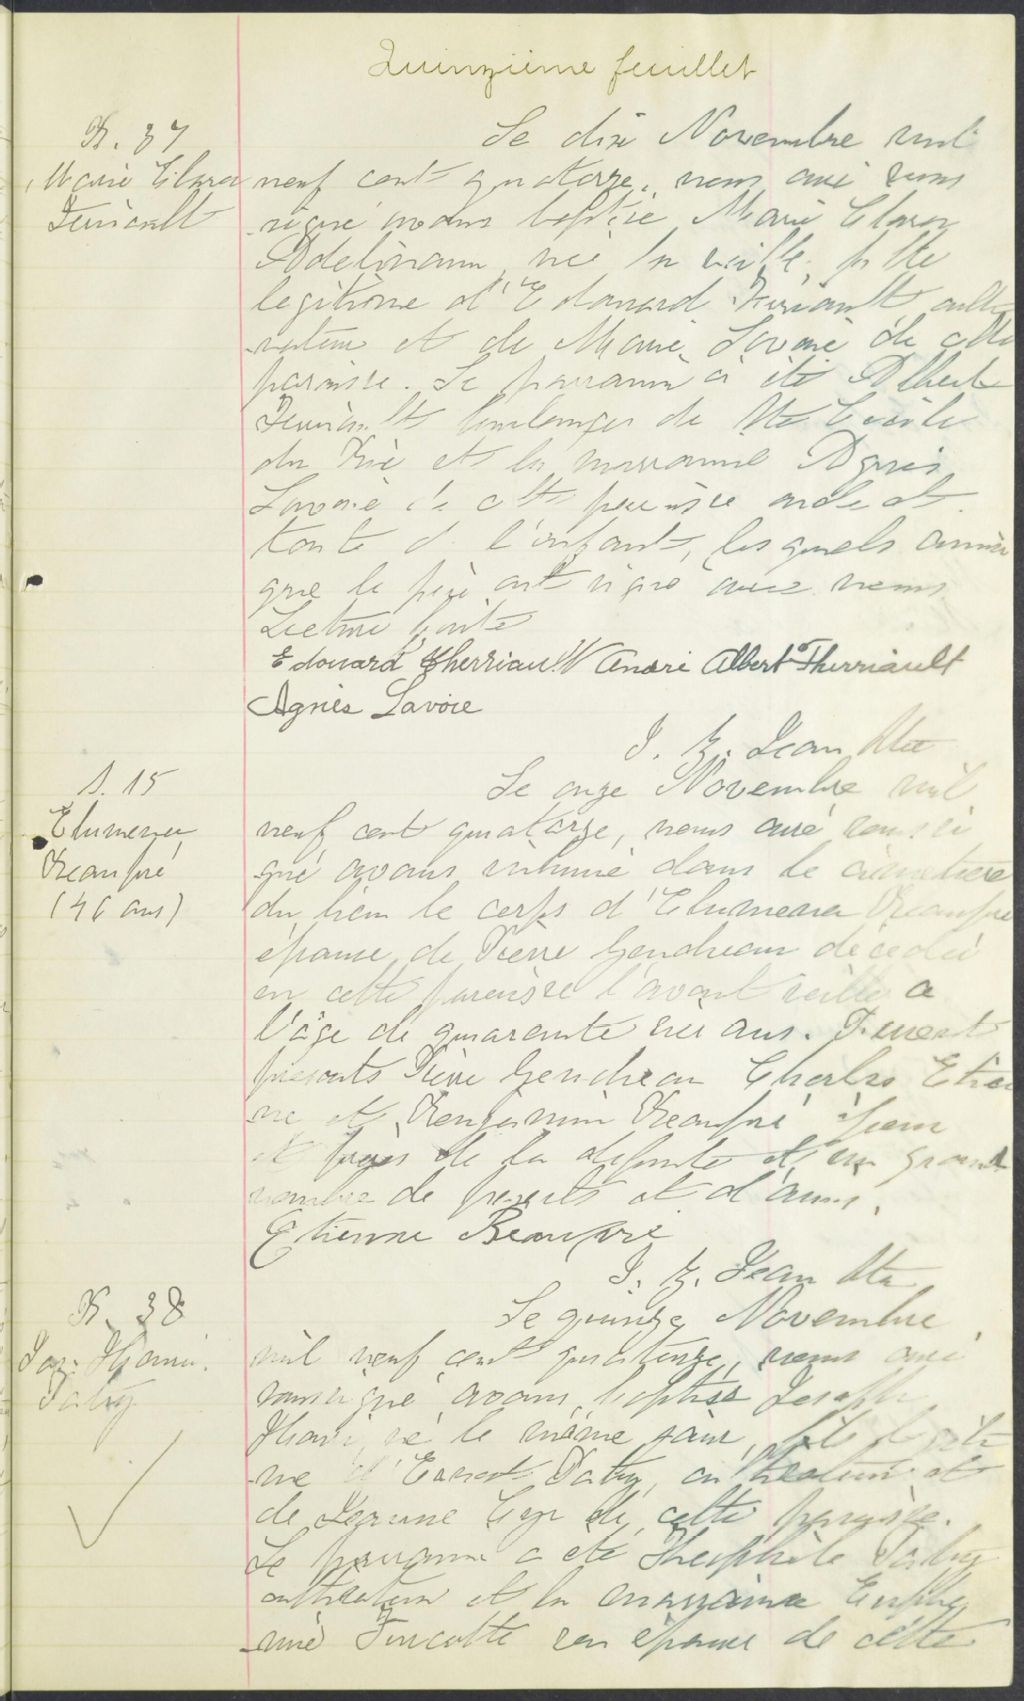 Quinzième feuillet
B. 37
Marie Clara
Terriault
Le dix Novembre mil
neuf cent quatorze, nous curé sous
signé avons baptisé Marie Clara
née la veille, fille
légitime d'Edouard Terriault culti
vateur et de Marie Lavoie de cette
paroisse. Le parrain a été Albert
Terriault boulanger de Ste Cécile
du Bic et la marraine Agnès
Lavoie de cette paroisse oncle et
tante de l'enfant, lesquels ainsi
que le père ont signé avec nous
Lecture faite
Edouard Therriault André Albert Therriault
Agnès Lavoie
J. Z. Jean Ptre
S. 15
Elumena
Beaupré
(46 ans)
Le onze Novembre mil
neuf cent quatorze, nous curé soussi
gné avons inhumé dans le cimetière
du lieu le corps d'Elumena Beaupré
épouse de Pierre Gendreau décédée
en cette paroisse l'avant veille a
l'âge de quarante six ans. Furent
présents Pierre Gendreau Charles Etien
ne et Benjamin Beaupré époux
et frères de la défunte et un grand
nombre de parents et d'amis.
Etienne Beaupré
J. Z. Jean Ptre
B. 38
Jos. Thom.
Patry
Le quinze Novembre
mil neuf cent quatorze, nous curé
soussigné avons baptisé Joseph
né le même jour, fils légiti
me d'Ernest Patry, cultivateur et
de Jeanne Cyr de cette paroisse.
Le parrain a été Théophile Patry
cultivateur et la marraine Euphé
mie Turcotte son épouse de cette